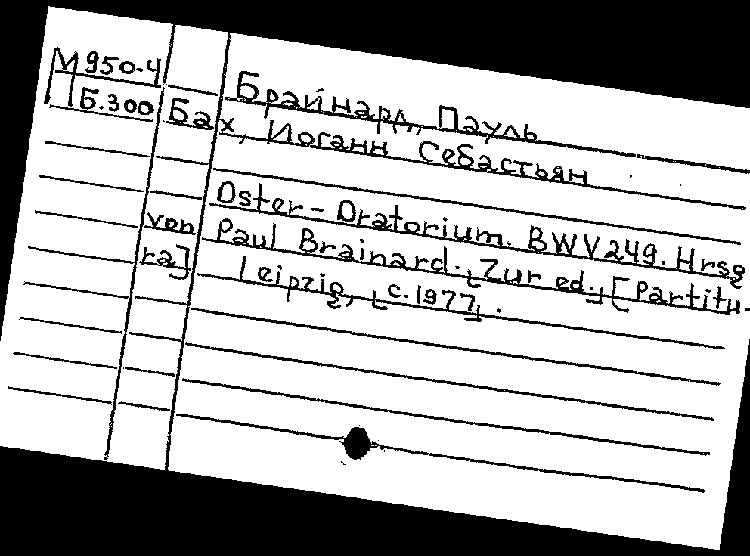 М950-4
Б.300
Брайнард, Пауль
Бах, Иоганн Себастьян
Oster-Oratorium. BWV 249. Hrsg
von Paul Brainard. [Zur ed.] [Partitu-
ra] Leipzig, [c. 1977].